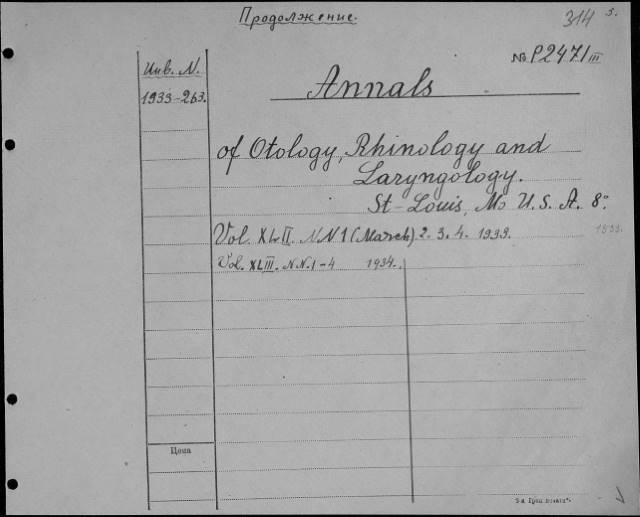 Продолжение.
314 s.
№ P2471 III
Инв. N.
1933-263.
Annals
of Otology, Rhinology and
Laryngology.
St-Louis, Mo U.S.A. 8°
Vol. XLII. NN1 (March). 2. 3. 4. 1933.
1933.
Vol. XLIII. NN.1-4 1934.
Цена